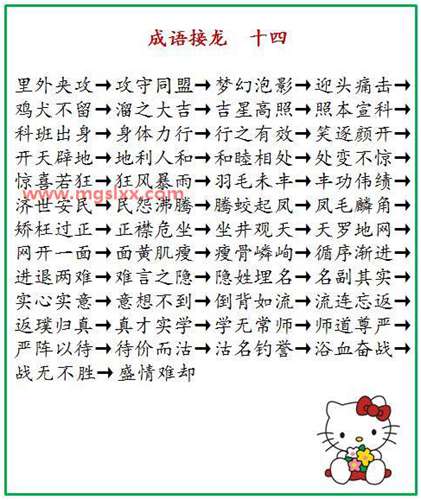 成语接龙 十四
里外夹攻→攻守同盟→梦幻泡影→迎头痛击→
鸡犬不留→溜之大吉→吉星高照→照本宣科→
科班出身→身体力行→行之有效→笑逐颜开→
开天辟地→地利人和→和睦相处→处变不惊→
惊喜若狂→狂风暴雨→羽毛未丰→丰功伟绩→
www.mgslxx.com
济世安民→民怨沸腾→腾蛟起凤→凤毛麟角→
矫枉过正→正襟危坐→坐井观天→天罗地网→
网开一面→面黄肌瘦→瘦骨嶙峋→循序渐进→
进退两难→难言之隐→隐姓埋名→名副其实→
实心实意→意想不到→倒背如流→流连忘返→
返璞归真→真才实学→学无常师→师道尊严→
严阵以待→待价而沽→沽名钓誉→浴血奋战→
战无不胜→盛情难却